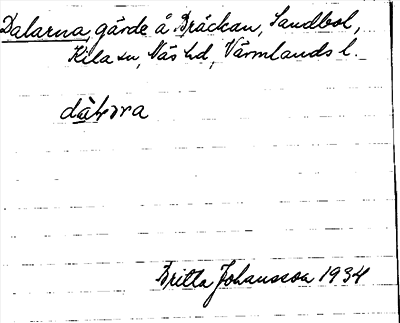 Dalarna, gärde å Bräckan, Sandbol,
Kila sn, Näs hd, Värmlands l.
Britta Johansson 1934